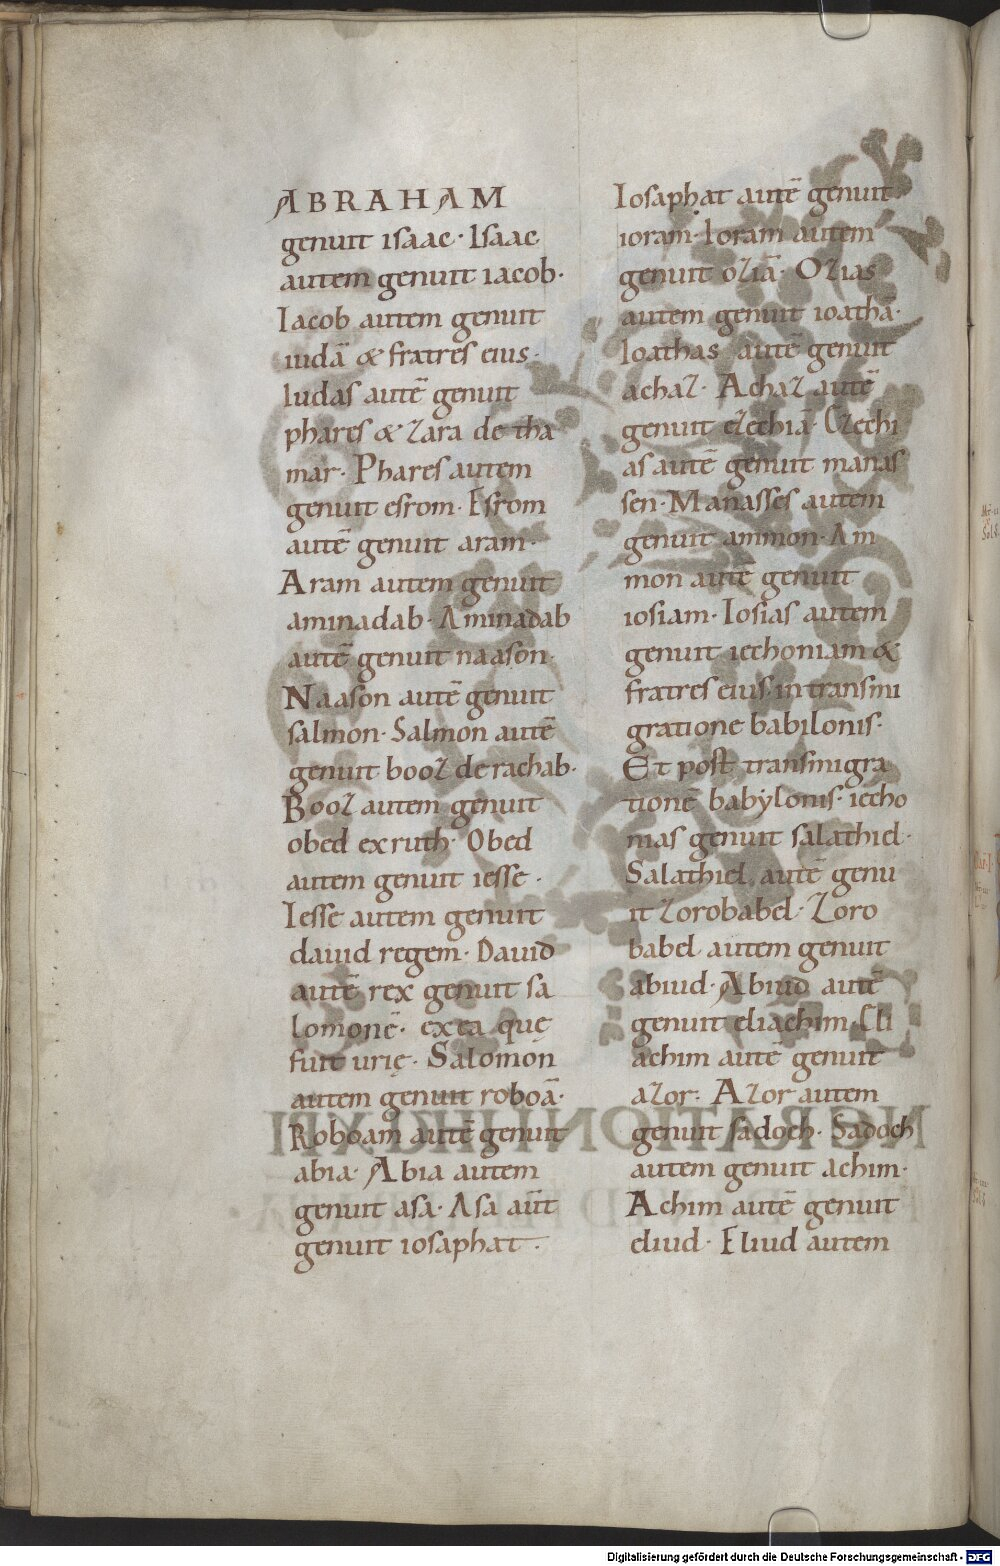 ABRAHAM
genuit isaac · Isaac
autem genuit iacob ·
Iacob autem genuit
iudā & fratres eius ·
Iudas autē genuit
phares & zara de tha
mar · Phares autem
genuit esrom · Esrom
autē genuit aram ·
Aram autem genuit
aminadab · Aminadab
autē genuit naason ·
Naason autē genuit
salmon · Salmon autē
genuit booz de rachab ·
Booz autem genuit
obed ex ruth · Obed
autem genuit iesse ·
Iesse autem genuit
dauid regem · Dauid
autē rex genuit sa
lomonē · ex ea quę
fuit urię · Salomon
autem genuit roboā ·
Roboam autē genuit
abia · Abia autem
genuit asa · Asa aūt
genuit iosaphat ·
Iosaphat autē genuit
ioram · Ioram autem
genuit oziā · Ozias
autem genuit ioathā ·
Ioathas autē genuit
achaz · Achaz autē
genuit ezechiā · Ezechi
as autē genuit manas
sen · Manasses autem
genuit ammon · Am
mon autē genuit
iosiam · Iosias autem
genuit iechoniam &
fratres eius · in transmi
gratione babilonis ·
Et post transmigra
tionē babylonis · iecho
nias genuit salathiel ·
Salathiel autē genu
it zorobabel · Zoro
babel autem genuit
abiud · Abiud autē
genuit eliachim · Eli
achim autē genuit
azor · Azor autem
genuit sadoch · Sadoch
autem genuit achim ·
Achim autē genuit
eliud · Eliud autem
Digitalisierung gefördert durch die Deutsche Forschungsgemeinschaft - DFG